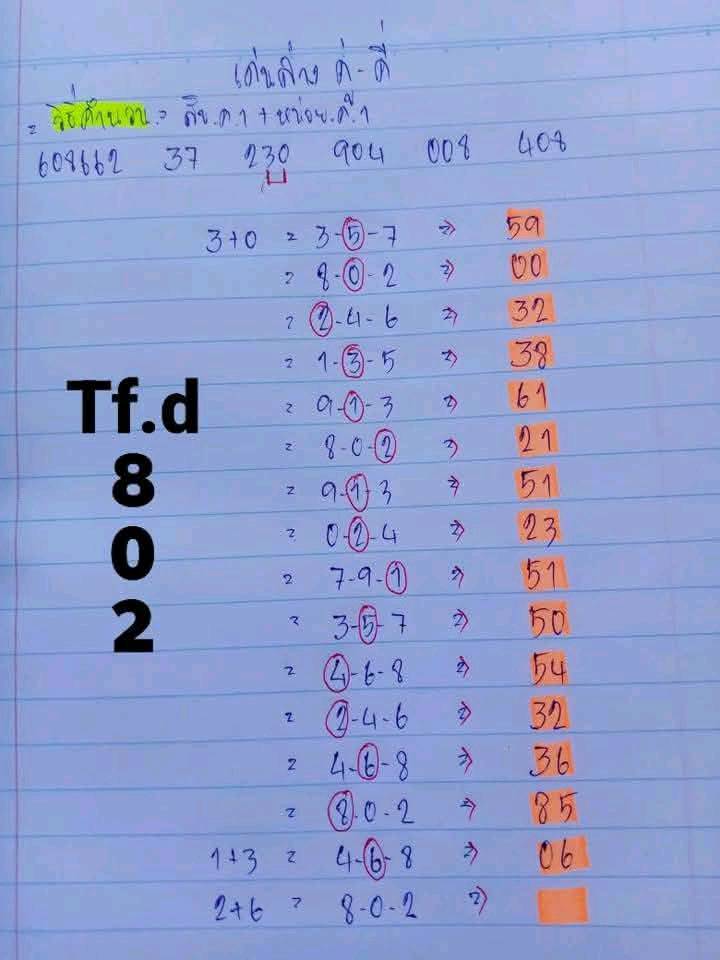 เด่นล่าง คู่-คี่
= วิธีคำนวน = สิบ.ค.1 + หน่วย.ค.1
608662 37 230 904 008 408
3+0 = 3-5-7 => 59
= 8-0-2 => 00
= 2-4-6 => 32
= 1-3-5 => 38
= 9-1-3 => 61
= 8-0-2 => 21
= 9-1-3 => 51
= 0-2-4 => 23
= 7-9-1 => 51
= 3-5-7 => 50
= 4-6-8 => 54
= 2-4-6 => 32
= 4-6-8 => 36
= 8-0-2 => 85
1+3 = 4-6-8 => 06
2+6 = 8-0-2 =>
Tf.d
8
0
2